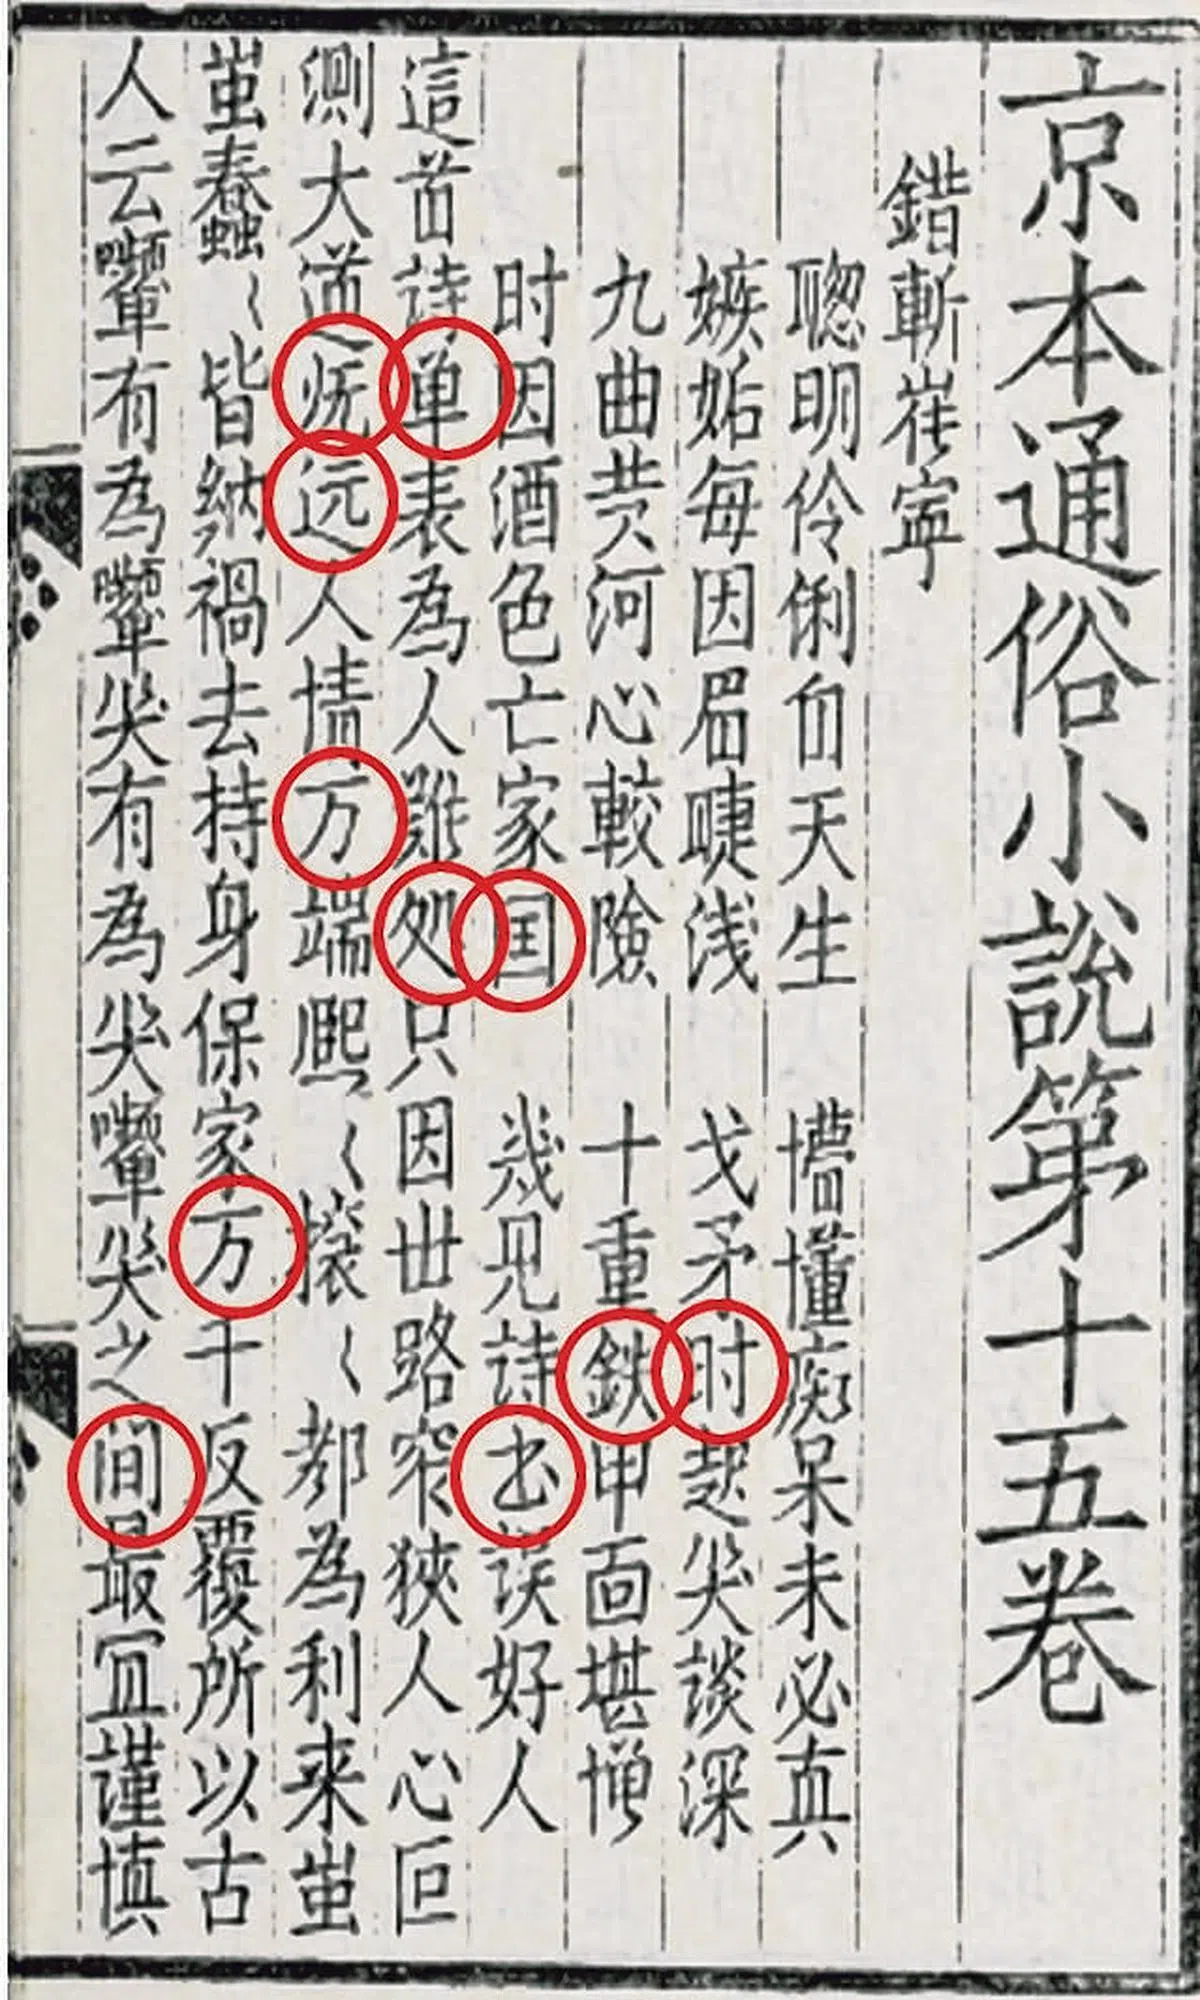 京本通俗小說第十五卷
錯斬崔寧
聦明伶俐自天生　懵懂痴呆未必真
嫉妬每因眉睫浅　戈矛时起笑談深
九曲黄河心較險　十重鉄甲面堪憎
时因酒色亡家囯　幾见詩书誤好人
這首詩单表為人難处只因世路窄狹人心叵
測大道既远人情万端熙〻攘〻都為利来蚩
蚩蠢〻皆納禍去持身保家万千反覆所以古
人云顰有為顰笑有為笑顰笑之间最宜謹慎